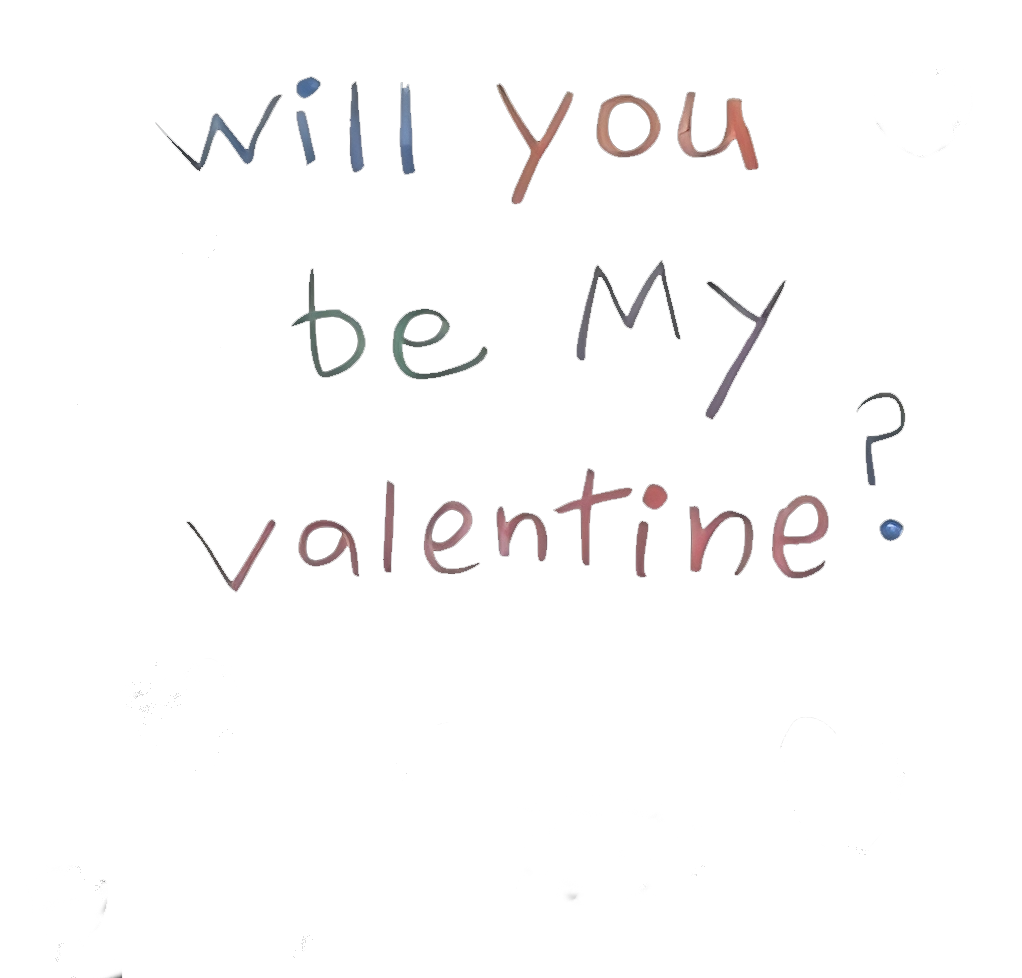 will you
be My
valentine?